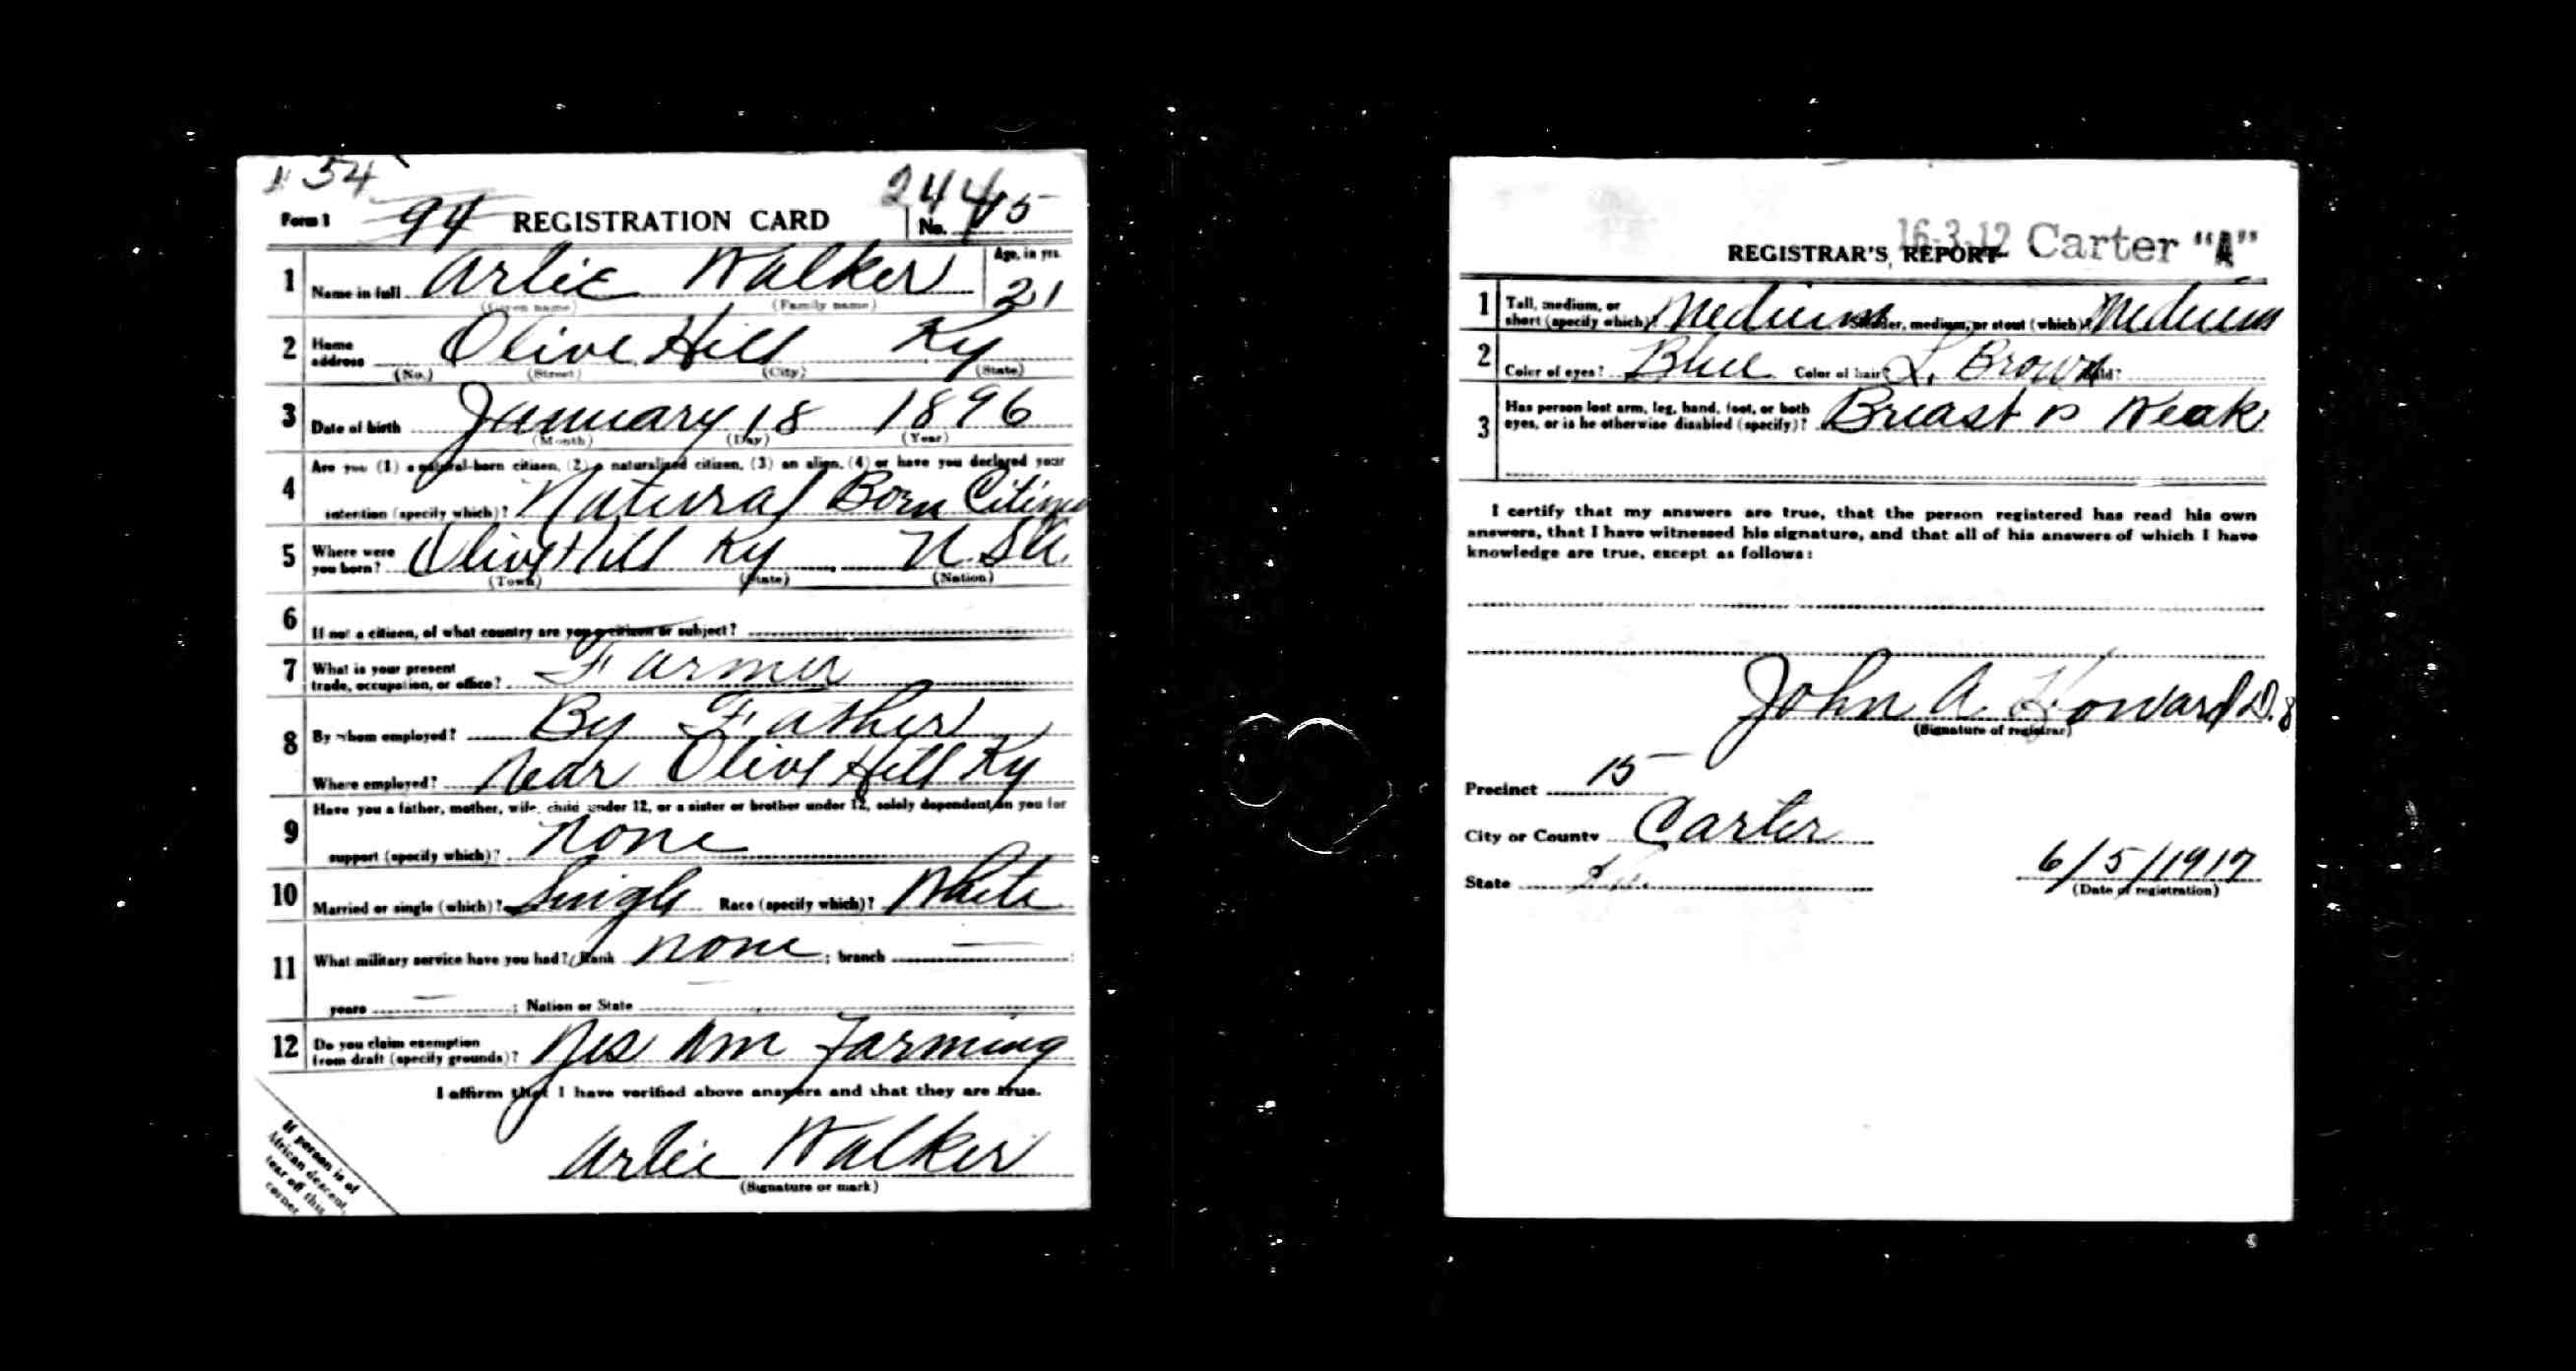 1 54
Form 1 94 REGISTRATION CARD No. 15
1 Name in full Arlie Walker Age, in yrs. 21
(Given name) (Family name)
2 Home address Olive Hill Ky
(No.) (Street) (City) (State)
3 Date of birth January 18 1896
(Month) (Day) (Year)
4 Are you (1) a natural-born citizen, (2) a naturalized citizen, (3) an alien, (4) or have you declared your
intention (specify which)? Natural Born Citizen
5 Where were you born? Olive Hill Ky U S A
(Town) (State) (Nation)
6 If not a citizen, of what country are you a citizen or subject?
7 What is your present trade, occupation, or office? Farmer
8 By whom employed? By Father
Where employed? Near Olive Hill Ky
9 Have you a father, mother, wife, child under 12, or a sister or brother under 12, solely dependent on you for
support (specify which)? None
10 Married or single (which)? Single Race (specify which)? White
11 What military service have you had? Rank None ; branch —
years — ; Nation or State
12 Do you claim exemption from draft (specify grounds)? Yes Am Farming
I affirm that I have verified above answers and that they are true.
Arlie Walker
(Signature or mark)
If person is of
African descent,
tear off this
corner
16-3-12 Carter "A"
REGISTRAR'S REPORT
1 Tall, medium, or short (specify which)? Medium Slender, medium, or stout (which)? Medium
2 Color of eyes? Blue Color of hair? L. Brown Bald?
3 Has person lost arm, leg, hand, foot, or both
eyes, or is he otherwise disabled (specify)? Breast is Weak
I certify that my answers are true, that the person registered has read his own
answers, that I have witnessed his signature, and that all of his answers of which I have
knowledge are true, except as follows:
John A. Howard D. S
(Signature of registrar)
Precinct 15
City or County Carter
State
6/5/1917
(Date of registration)